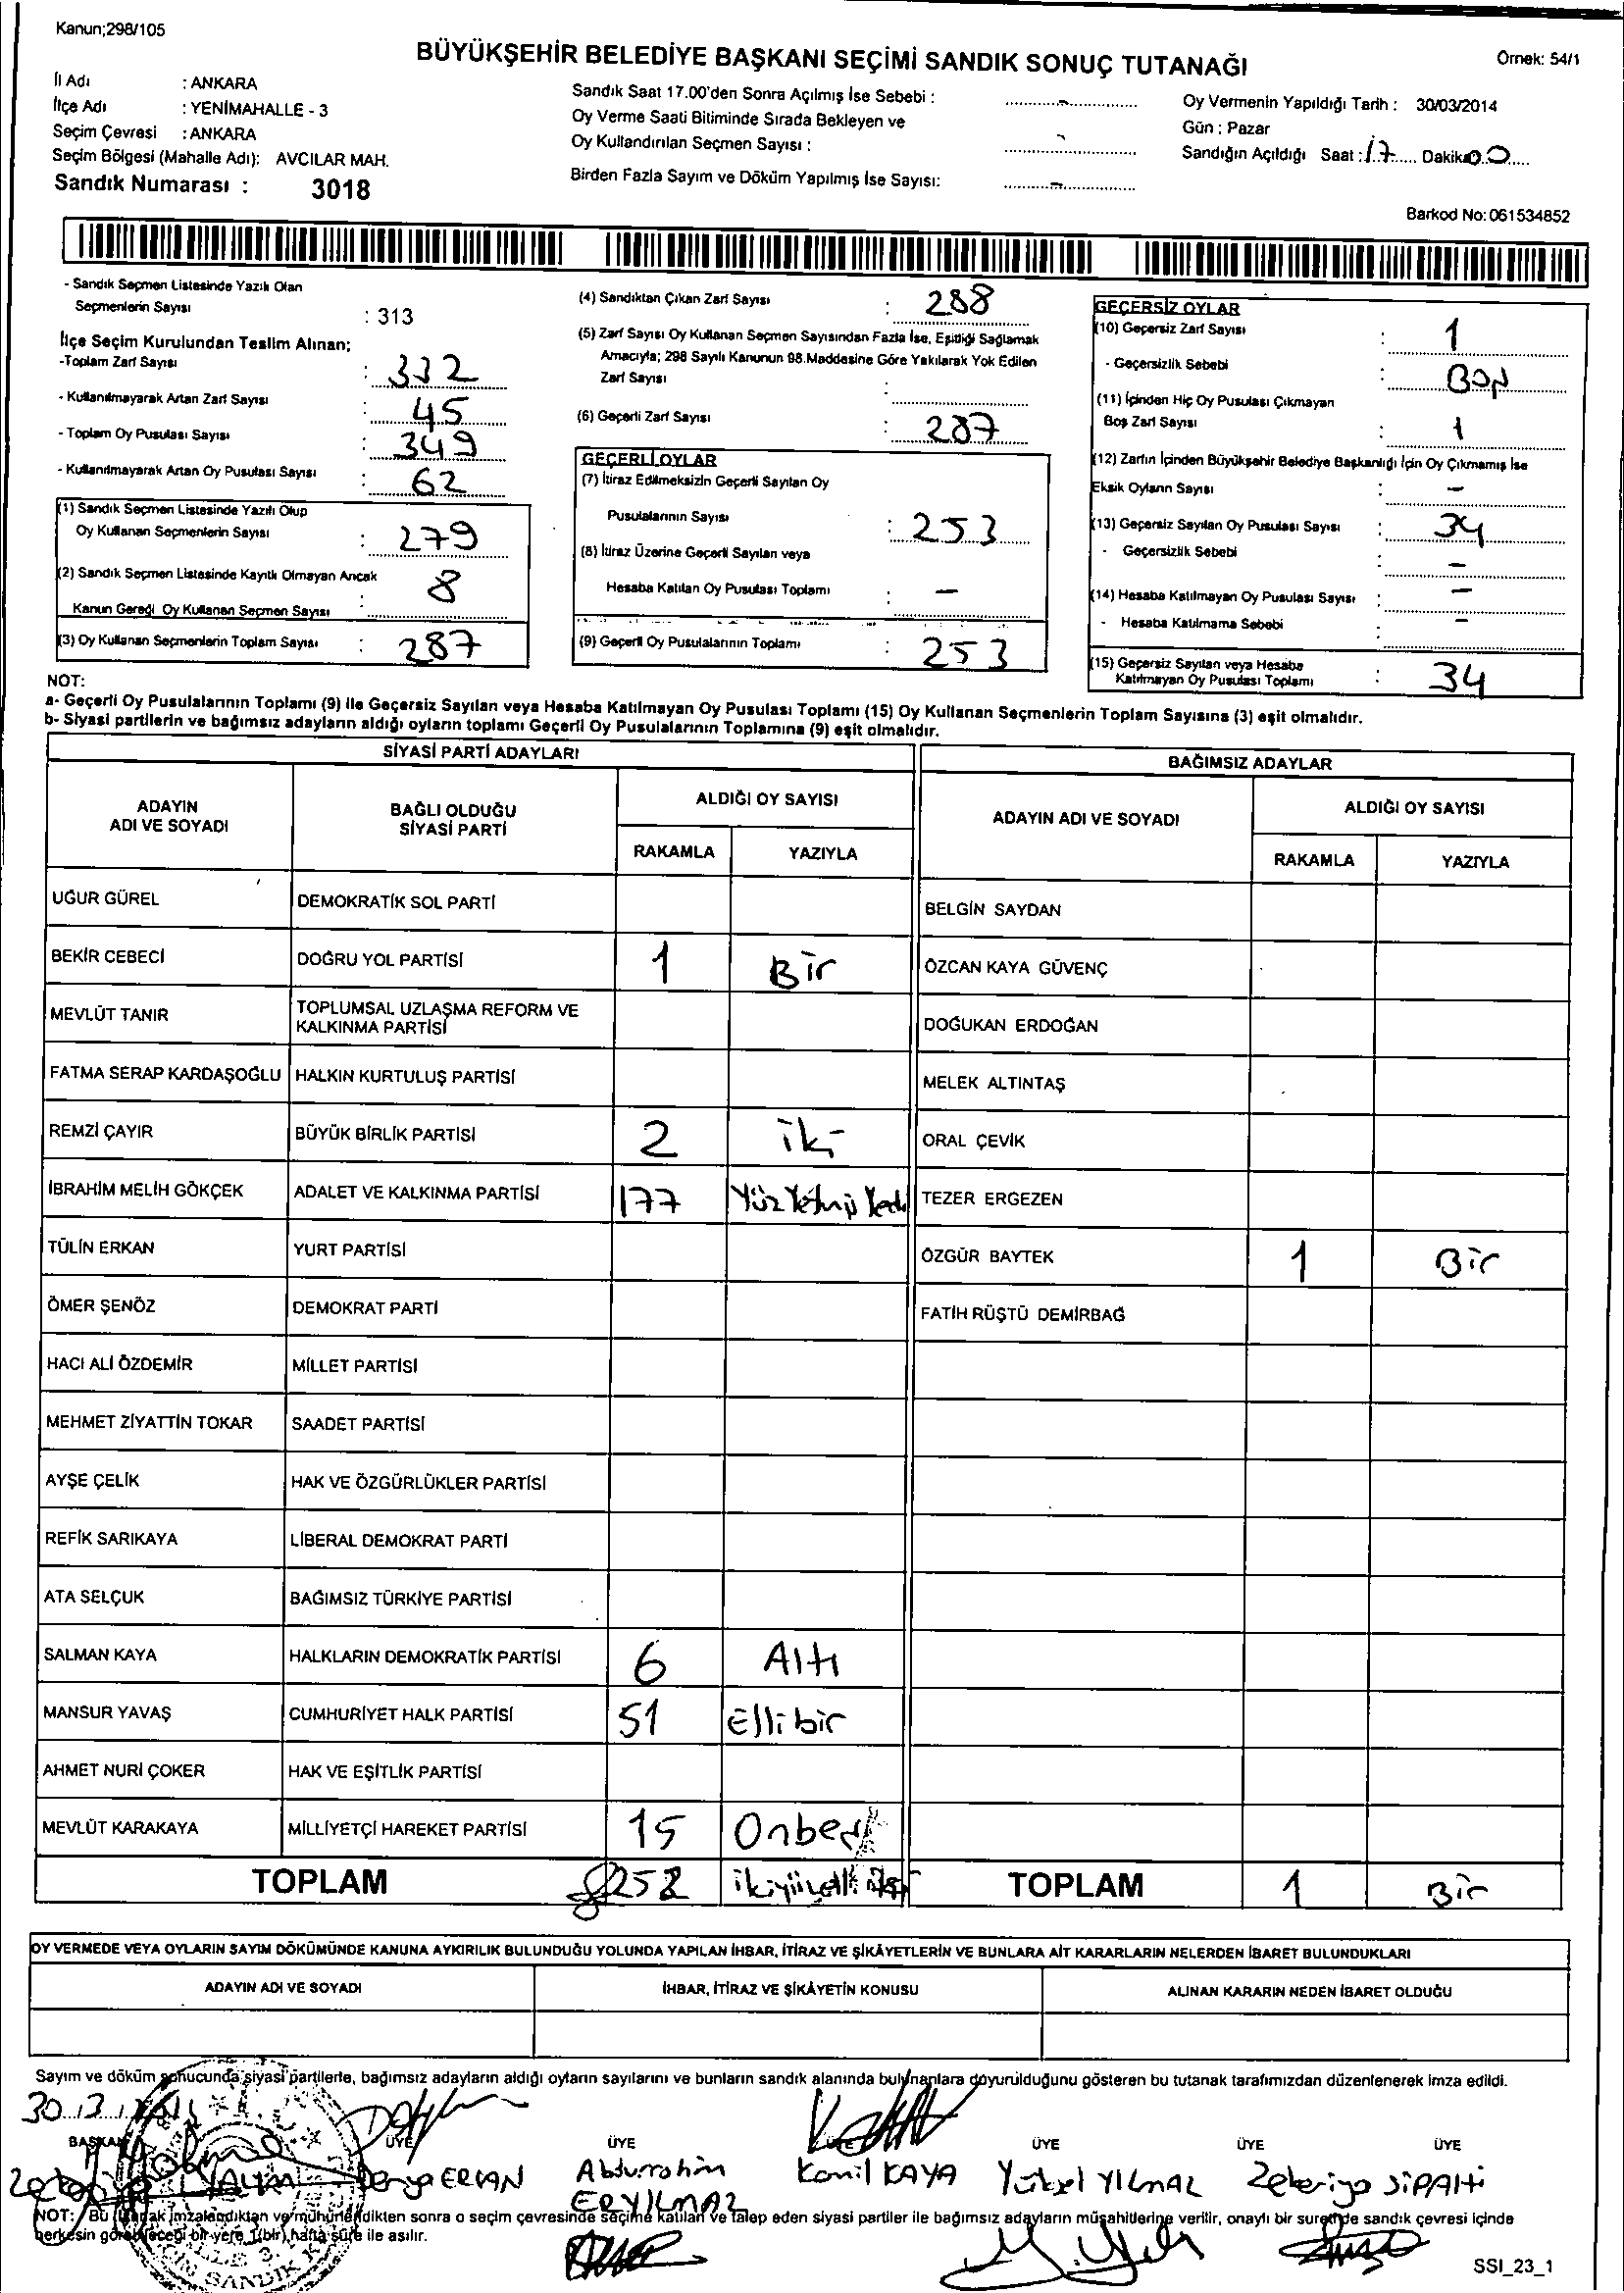 Kanun;298/105
BÜYÜKŞEHİR BELEDİYE BAŞKANI SEÇİMİ SANDIK SONUÇ TUTANAĞI
Örnek: 54/1
İl Adı : ANKARA
İlçe Adı : YENİMAHALLE - 3
Seçim Çevresi : ANKARA
Seçim Bölgesi (Mahalle Adı): AVCILAR MAH.
Sandık Numarası : 3018
Sandık Saat 17.00'den Sonra Açılmış İse Sebebi : -
Oy Verme Saati Bitiminde Sırada Bekleyen ve
Oy Kullandırılan Seçmen Sayısı : -
Birden Fazla Sayım ve Döküm Yapılmış İse Sayısı: -
Oy Vermenin Yapıldığı Tarih : 30/03/2014
Gün : Pazar
Sandığın Açıldığı Saat : 17 Dakika 00
Barkod No: 061534852
- Sandık Seçmen Listesinde Yazılı Olan
Seçmenlerin Sayısı : 313
İlçe Seçim Kurulundan Teslim Alınan;
-Toplam Zarf Sayısı : 332
- Kullanılmayarak Artan Zarf Sayısı : 45
- Toplam Oy Pusulası Sayısı : 349
- Kullanılmayarak Artan Oy Pusulası Sayısı : 62
(1) Sandık Seçmen Listesinde Yazılı Olup
Oy Kullanan Seçmenlerin Sayısı : 279
(2) Sandık Seçmen Listesinde Kayıtlı Olmayan Ancak
Kanun Gereği Oy Kullanan Seçmen Sayısı : 8
(3) Oy Kullanan Seçmenlerin Toplam Sayısı : 287
(4) Sandıktan Çıkan Zarf Sayısı : 288
(5) Zarf Sayısı Oy Kullanan Seçmen Sayısından Fazla İse, Eşitliği Sağlamak
Amacıyla; 298 Sayılı Kanunun 98.Maddesine Göre Yakılarak Yok Edilen
Zarf Sayısı :
(6) Geçerli Zarf Sayısı : 287
GEÇERLİ OYLAR
(7) İtiraz Edilmeksizin Geçerli Sayılan Oy
Pusulalarının Sayısı : 253
(8) İtiraz Üzerine Geçerli Sayılan veya
Hesaba Katılan Oy Pusulası Toplamı : -
(9) Geçerli Oy Pusulalarının Toplamı : 253
GEÇERSİZ OYLAR
(10) Geçersiz Zarf Sayısı : 1
- Geçersizlik Sebebi :
(11) İçinden Hiç Oy Pusulası Çıkmayan
Boş Zarf Sayısı : 1
(12) Zarfın İçinden Büyükşehir Belediye Başkanlığı İçin Oy Çıkmamış İse
Eksik Oyların Sayısı : -
(13) Geçersiz Sayılan Oy Pusulası Sayısı : 34
- Geçersizlik Sebebi : -
(14) Hesaba Katılmayan Oy Pusulası Sayısı : -
- Hesaba Katılmama Sebebi : -
(15) Geçersiz Sayılan veya Hesaba
Katılmayan Oy Pusulası Toplamı : 34
NOT:
a- Geçerli Oy Pusulalarının Toplamı (9) ile Geçersiz Sayılan veya Hesaba Katılmayan Oy Pusulası Toplamı (15) Oy Kullanan Seçmenlerin Toplam Sayısına (3) eşit olmalıdır.
b- Siyasi partilerin ve bağımsız adayların aldığı oyların toplamı Geçerli Oy Pusulalarının Toplamına (9) eşit olmalıdır.
SİYASİ PARTİ ADAYLARI
ADAYIN ADI VE SOYADI BAĞLI OLDUĞU SİYASİ PARTİ ALDIĞI OY SAYISI
RAKAMLA YAZIYLA
UĞUR GÜREL DEMOKRATİK SOL PARTİ
BEKİR CEBECİ DOĞRU YOL PARTİSİ 1 Bir
MEVLÜT TANIR TOPLUMSAL UZLAŞMA REFORM VE KALKINMA PARTİSİ
FATMA SERAP KARDAŞOĞLU HALKIN KURTULUŞ PARTİSİ
REMZİ ÇAYIR BÜYÜK BİRLİK PARTİSİ 2 iki
İBRAHİM MELİH GÖKÇEK ADALET VE KALKINMA PARTİSİ 177 Yüz Yetmiş Yedi
TÜLİN ERKAN YURT PARTİSİ
ÖMER ŞENÖZ DEMOKRAT PARTİ
HACI ALİ ÖZDEMİR MİLLET PARTİSİ
MEHMET ZİYATTİN TOKAR SAADET PARTİSİ
AYŞE ÇELİK HAK VE ÖZGÜRLÜKLER PARTİSİ
REFİK SARIKAYA LİBERAL DEMOKRAT PARTİ
ATA SELÇUK BAĞIMSIZ TÜRKİYE PARTİSİ
SALMAN KAYA HALKLARIN DEMOKRATİK PARTİSİ 6 Altı
MANSUR YAVAŞ CUMHURİYET HALK PARTİSİ 51 Elli bir
AHMET NURİ ÇOKER HAK VE EŞİTLİK PARTİSİ
MEVLÜT KARAKAYA MİLLİYETÇİ HAREKET PARTİSİ 15 Onbeş
TOPLAM 252 ikiyüzelli iki
BAĞIMSIZ ADAYLAR
ADAYIN ADI VE SOYADI ALDIĞI OY SAYISI
RAKAMLA YAZIYLA
BELGİN SAYDAN
ÖZCAN KAYA GÜVENÇ
DOĞUKAN ERDOĞAN
MELEK ALTINTAŞ
ORAL ÇEVİK
TEZER ERGEZEN
ÖZGÜR BAYTEK 1 Bir
FATİH RÜŞTÜ DEMİRBAĞ
TOPLAM 1 Bir
OY VERMEDE VEYA OYLARIN SAYIM DÖKÜMÜNDE KANUNA AYKIRILIK BULUNDUĞU YOLUNDA YAPILAN İHBAR, İTİRAZ VE ŞİKÂYETLERİN VE BUNLARA AİT KARARLARIN NELERDEN İBARET BULUNDUKLARI
ADAYIN ADI VE SOYADI İHBAR, İTİRAZ VE ŞİKÂYETİN KONUSU ALINAN KARARIN NEDEN İBARET OLDUĞU
Sayım ve döküm sonucunda siyasi partilerle, bağımsız adayların aldığı oyların sayılarını ve bunların sandık alanında bulunanlara duyurulduğunu gösteren bu tutanak tarafımızdan düzenlenerek imza edildi.
BAŞKAN ÜYE ÜYE ÜYE ÜYE ÜYE ÜYE
Derya ERCAN Abdurrahim ERYILMAZ Kamil KAYA Yüksel YILMAZ Zekeriya SİPAHİ
NOT: Bu tutanak imzalandıktan ve mühürlendikten sonra o seçim çevresinde seçime katılan ve talep eden siyasi partiler ile bağımsız adayların müşahitlerine verilir, onaylı bir suretide sandık çevresi içinde
herkesin görebileceği bir yere 1(bir) hafta süre ile asılır.
SSI_23_1